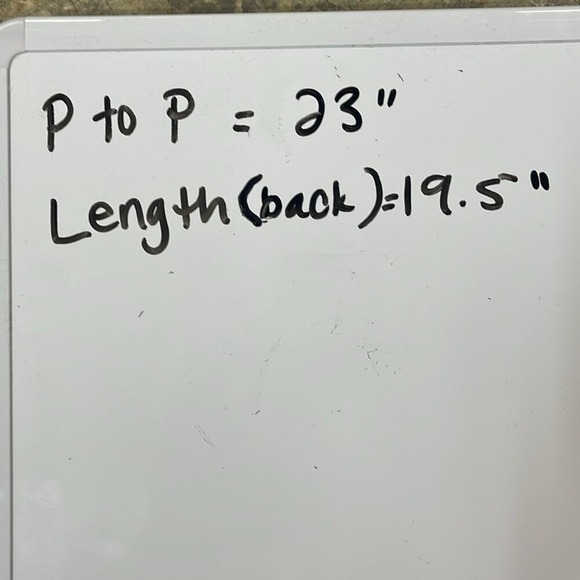 P to P = 23"
Length (back) = 19.5"